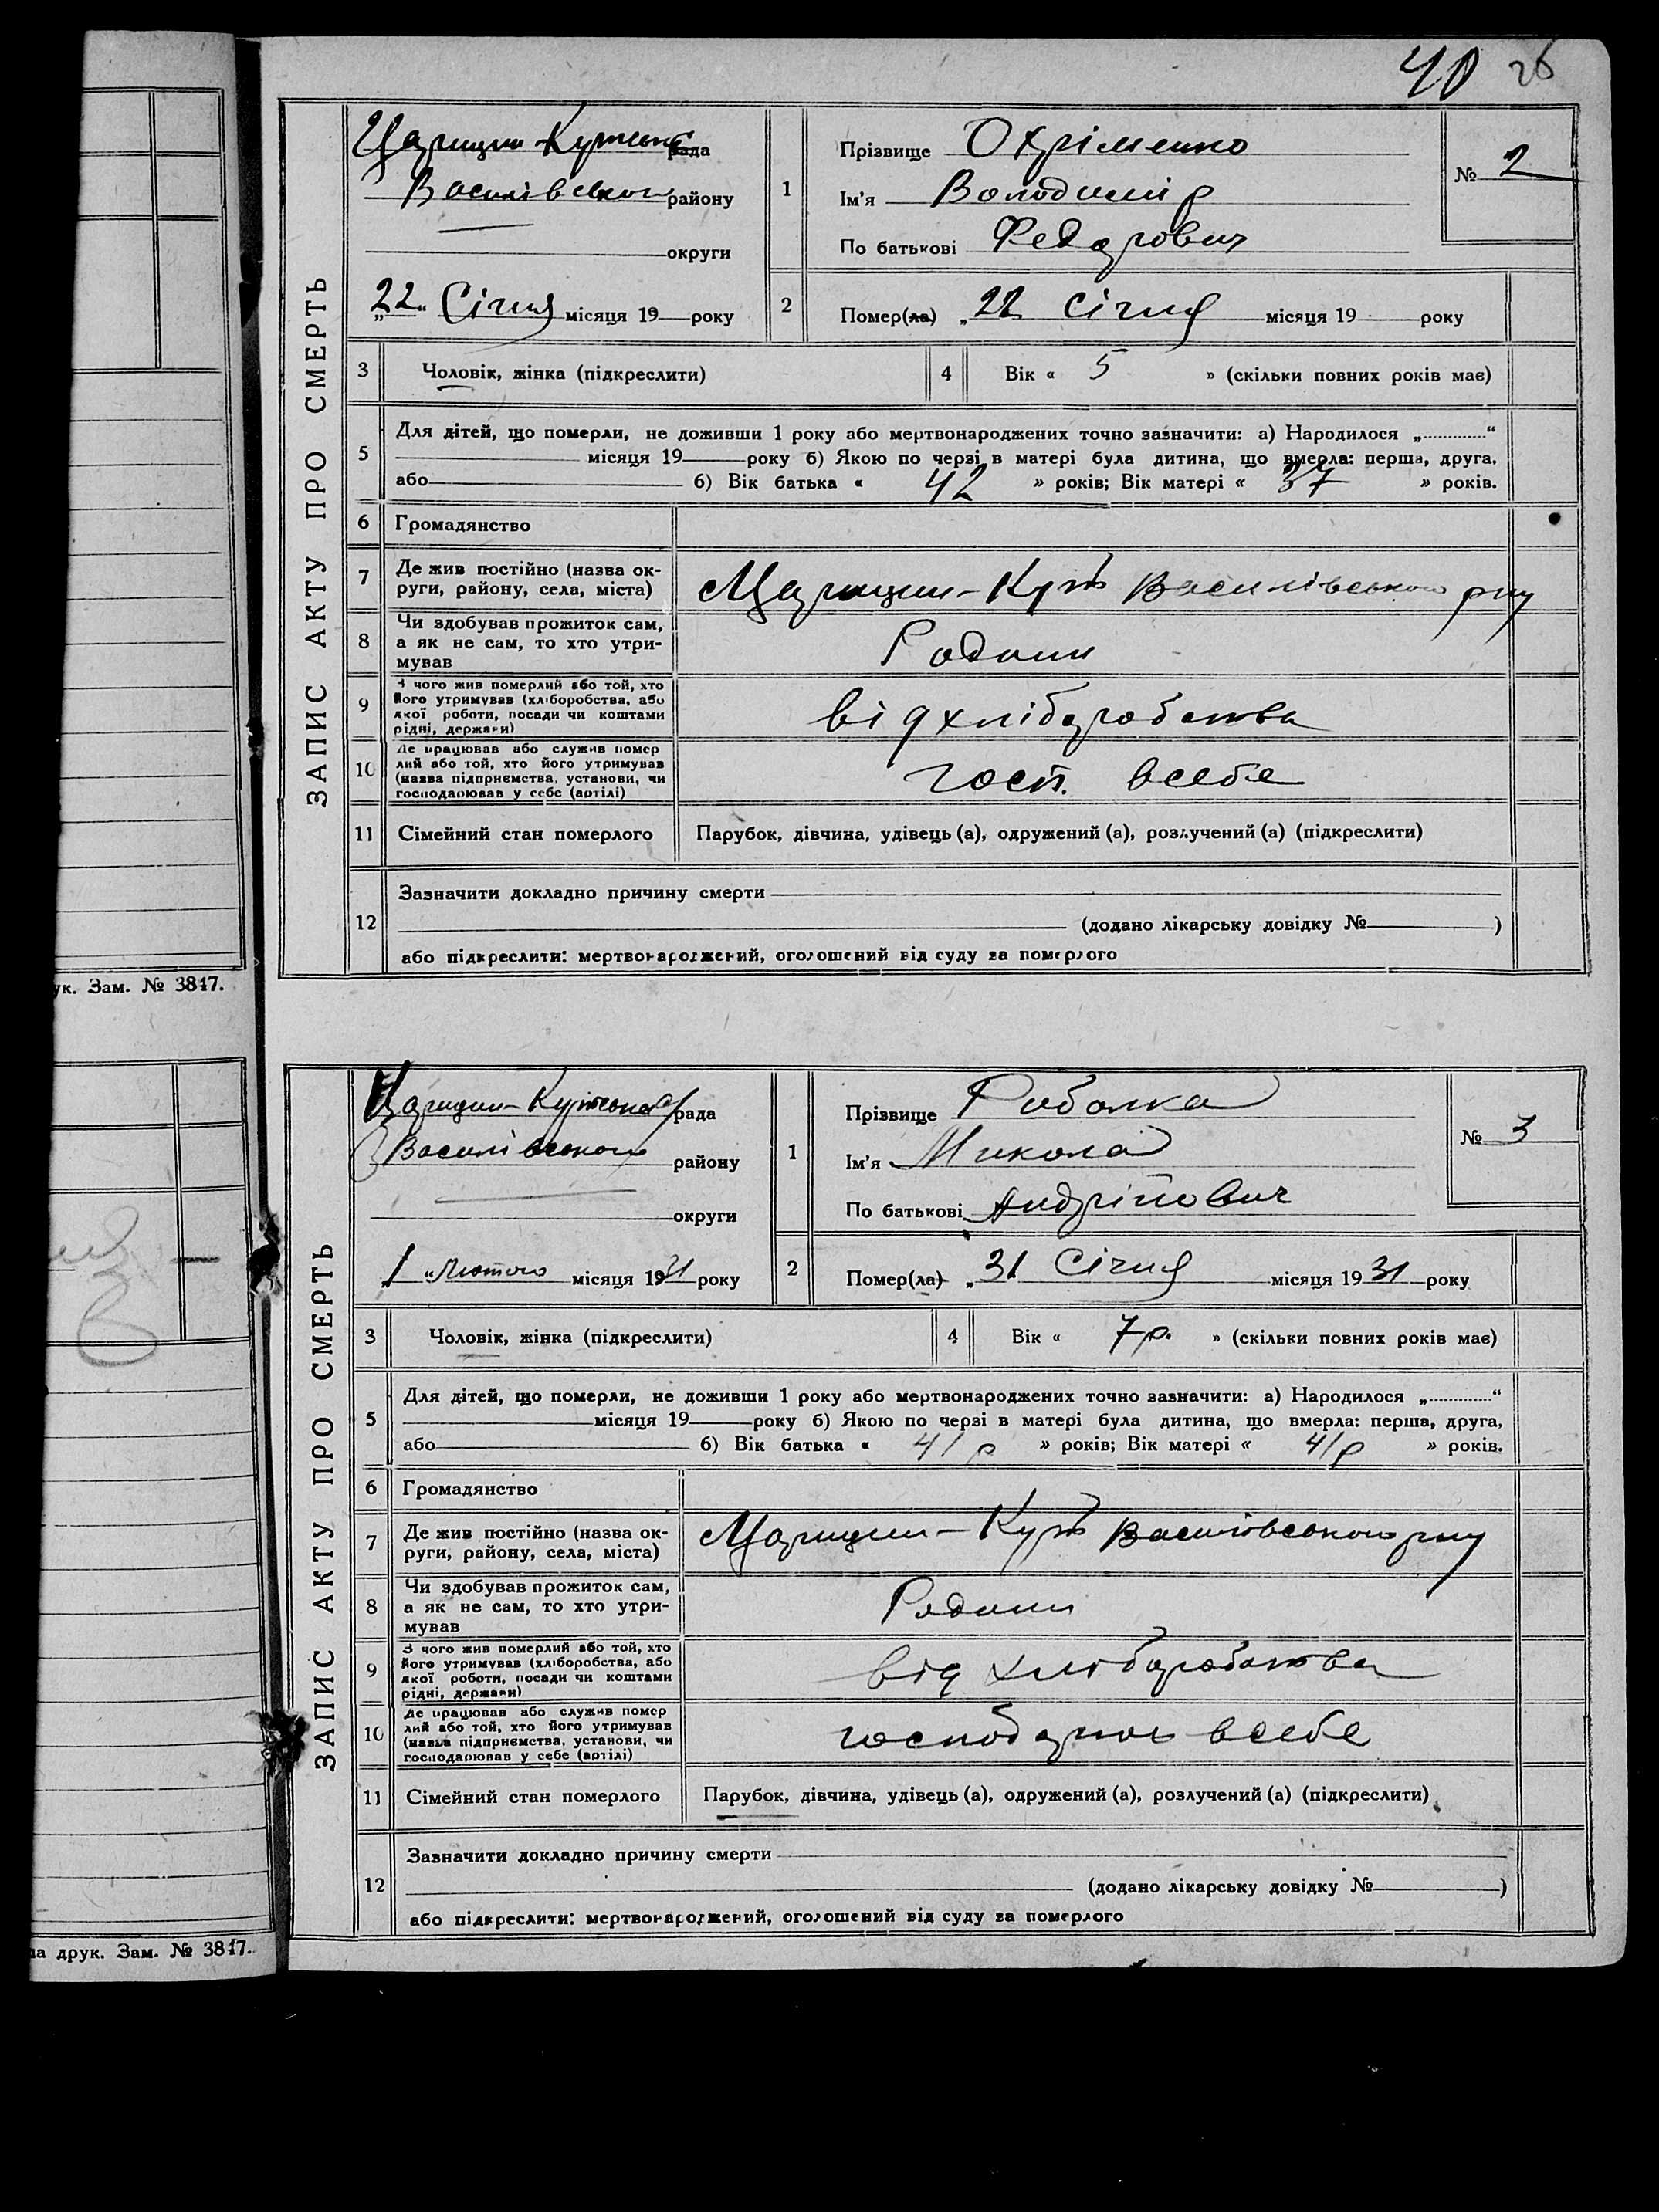 40 26
ЗАПИС АКТУ ПРО СМЕРТЬ
Царицин-Кутська рада
Василівського району
округи
„22“ Січня місяця 19 року
1
Прізвище Охріменко
Ім'я Володимір
По батькові Федорович
№ 2
2
Помер(ла) „22 Січня місяця 19 року
3 Чоловік, жінка (підкреслити)
4 Вік « 5 » (скільки повних років має)
5
Для дітей, що померли, не доживши 1 року або мертвонароджених точно зазначити: а) Народилося „............“
місяця 19 року б) Якою по черзі в матері була дитина, що вмерла: перша, друга,
або б) Вік батька « 42 » років; Вік матері « 37 » років.
6 Громадянство
7 Де жив постійно (назва ок-
руги, району, села, міста)
Царицин-Кут Василівського рну
8 Чи здобував прожиток сам,
а як не сам, то хто утри-
мував
Родини
9 З чого жив померлий або той, хто
його утримував (хліборобства, або
якої роботи, посади чи коштами
рідні, держави)
від хліборобства
10 Де працював або служив помер
лий або той, хто його утримував
(назва підприємства, установи, чи
господарював у себе (артілі)
госп. всебе
11 Сімейний стан померлого Парубок, дівчина, удівець (а), одружений (а), розлучений (а) (підкреслити)
12
Зазначити докладно причину смерти
(додано лікарську довідку № )
або підкреслити: мертвонароджений, оголошений від суду за померлого
ук. Зам. № 3847.
ЗАПИС АКТУ ПРО СМЕРТЬ
Царицин-Кутська рада
Василівського району
округи
„1 “ Лютого місяця 1931 року
1
Прізвище Рибалка
Ім'я Микола
По батькові Андрійович
№ 3
2
Помер(ла) „31 Січня місяця 1931 року
3 Чоловік, жінка (підкреслити)
4 Вік « 7 р. » (скільки повних років має)
5
Для дітей, що померли, не доживши 1 року або мертвонароджених точно зазначити: а) Народилося „............“
місяця 19 року б) Якою по черзі в матері була дитина, що вмерла: перша, друга,
або б) Вік батька « 41 р » років; Вік матері « 41 р » років.
6 Громадянство
7 Де жив постійно (назва ок-
руги, району, села, міста)
Царицин-Кут Василівського рну
8 Чи здобував прожиток сам,
а як не сам, то хто утри-
мував
Родини
9 З чого жив померлий або той, хто
його утримував (хліборобства, або
якої роботи, посади чи коштами
рідні, держави)
від хліборобства
10 Де працював або служив помер
лий або той, хто його утримував
(назва підприємства, установи, чи
господарював у себе (артілі)
всебе
11 Сімейний стан померлого Парубок, дівчина, удівець (а), одружений (а), розлучений (а) (підкреслити)
12
Зазначити докладно причину смерти
(додано лікарську довідку № )
або підкреслити: мертвонароджений, оголошений від суду за померлого
друк. Зам. № 3847.